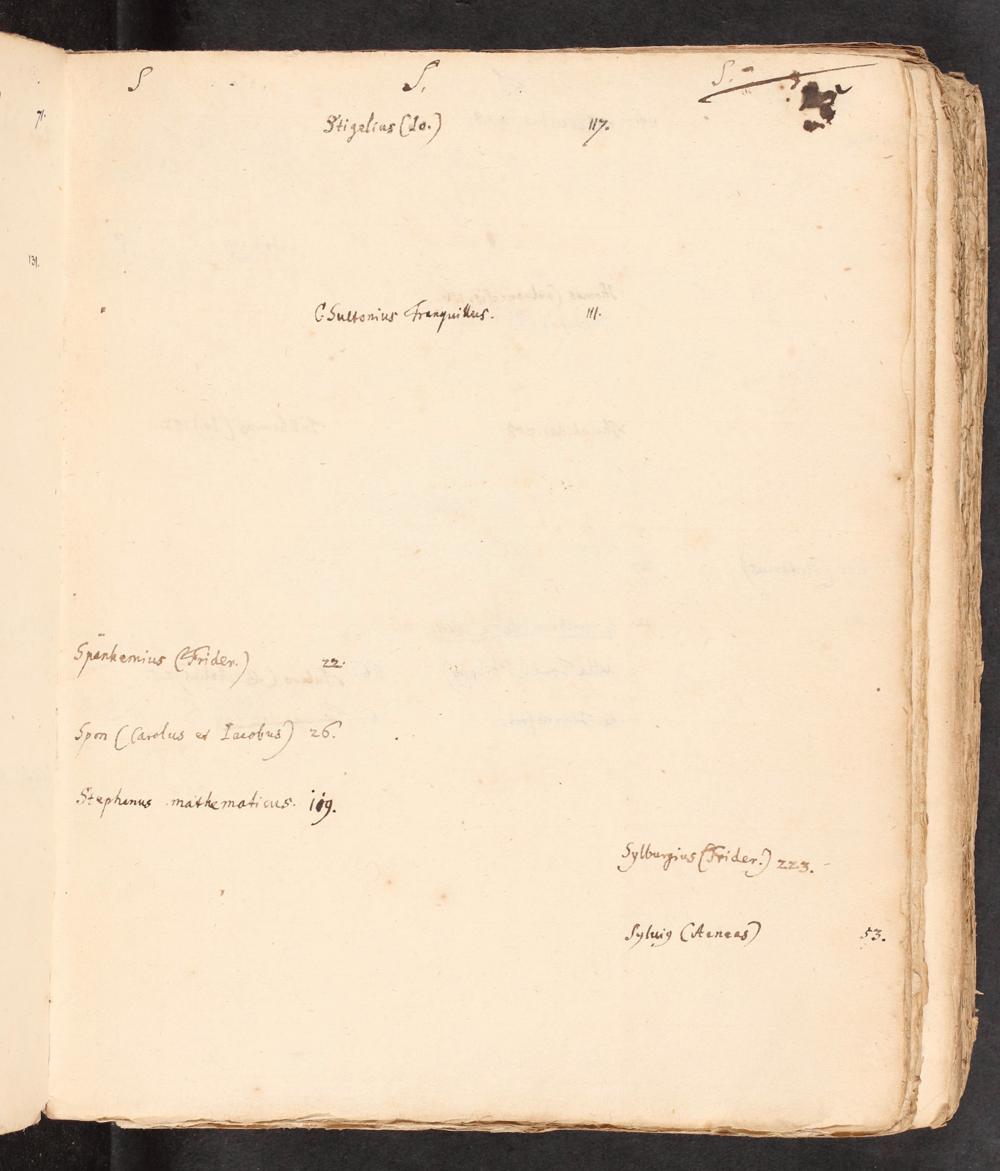 71.
131.
S
S.
S.
Stigelius (Io.) 117.
C Suetonius Tranquillus. 111.
Spanhemius (Frider.) 22.
Spon (Carolus et Iacobus) 26.
Stephanus mathematicus. 119.
Sylburgius (Frider.) 223.
Sylvi9 (Aeneas) 53.